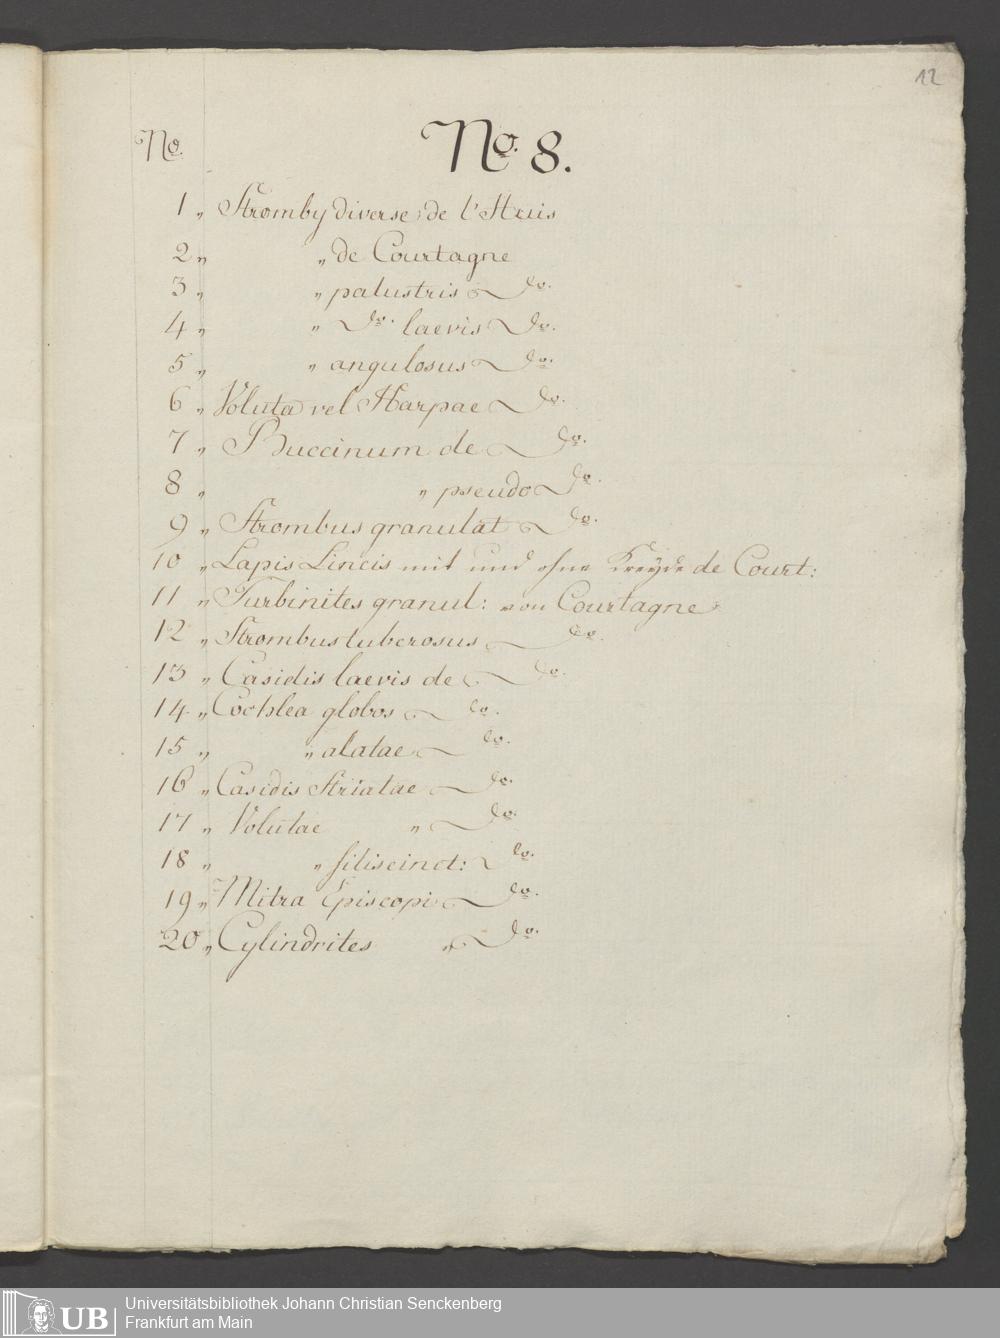 12
No. No. 8.
1 „ Stromby diverse de l'Huis
2 „ „ de Courtagne
3 „ „ palustris do.
4 „ „ do. laevis do.
5 „ „ angulosus do.
6 „ Voluta vel Harpae do.
7 „ Buccinum de do.
8 „ „ pseudo do.
9 „ Strombus granulat do.
10 „ Lapis Lincis mit und ohne Kreyde de Court:
11 „ Turbinites granul: von Courtagne
12 „ Strombus tuberosus do.
13 „ Casidis laevis de do.
14 „ Cochlea globos do.
15 „ „ alatae do.
16 „ Casidis Striatae do.
17 „ Volutae „ do.
18 „ „ filiscinct: do.
19 „ Mitra Episcopi do.
20 „ Cylindrites „ do.
UB Universitätsbibliothek Johann Christian Senckenberg
Frankfurt am Main